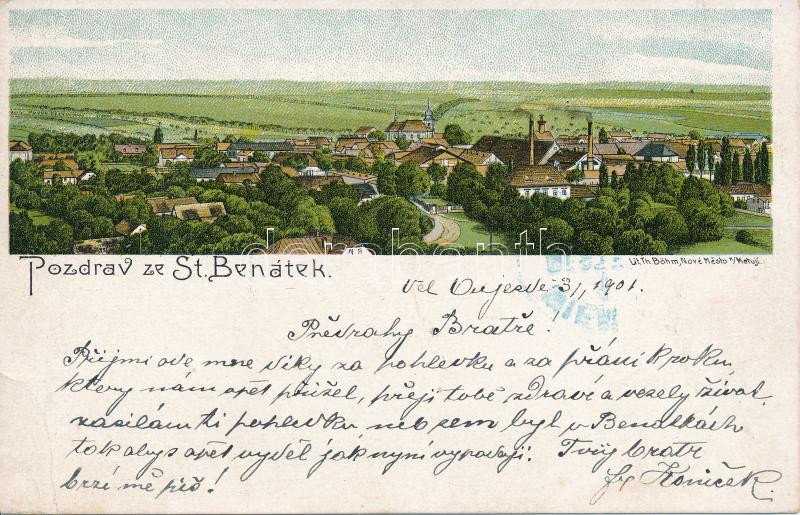 darabanth
N R
Pozdrav ze St. Benátek.
Lit. Th. Böhm, Nové Město n/Metují.
Vel 3/1 1901.
Předrahy Bratře!
Přijmi ode mne díky za pohledku a za přání k roku,
ktery nám opět přišel, přeji tobě zdraví a vesely život.
zasílám ti pohledku, neb sem byl v Benatkách
tak abys opět vyděl jak nyní vypadají. Tvůj bratr
brzi mě piš! Fr Koníček